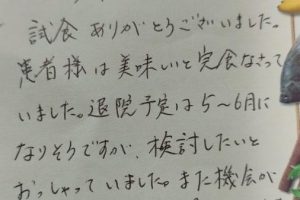 試食 ありがとうございました。
患者様は美味いと完食なさって
いました。退院予定は5~6月に
なりそうですが、検討したいと
おっしゃっていました。また機会が